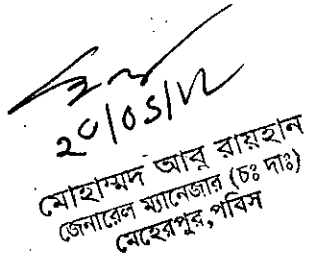 মোহাম্মদ আবু রায়হান
জেনারেল ম্যানেজার (চঃ দাঃ)
মেহেরপুর, পবিস